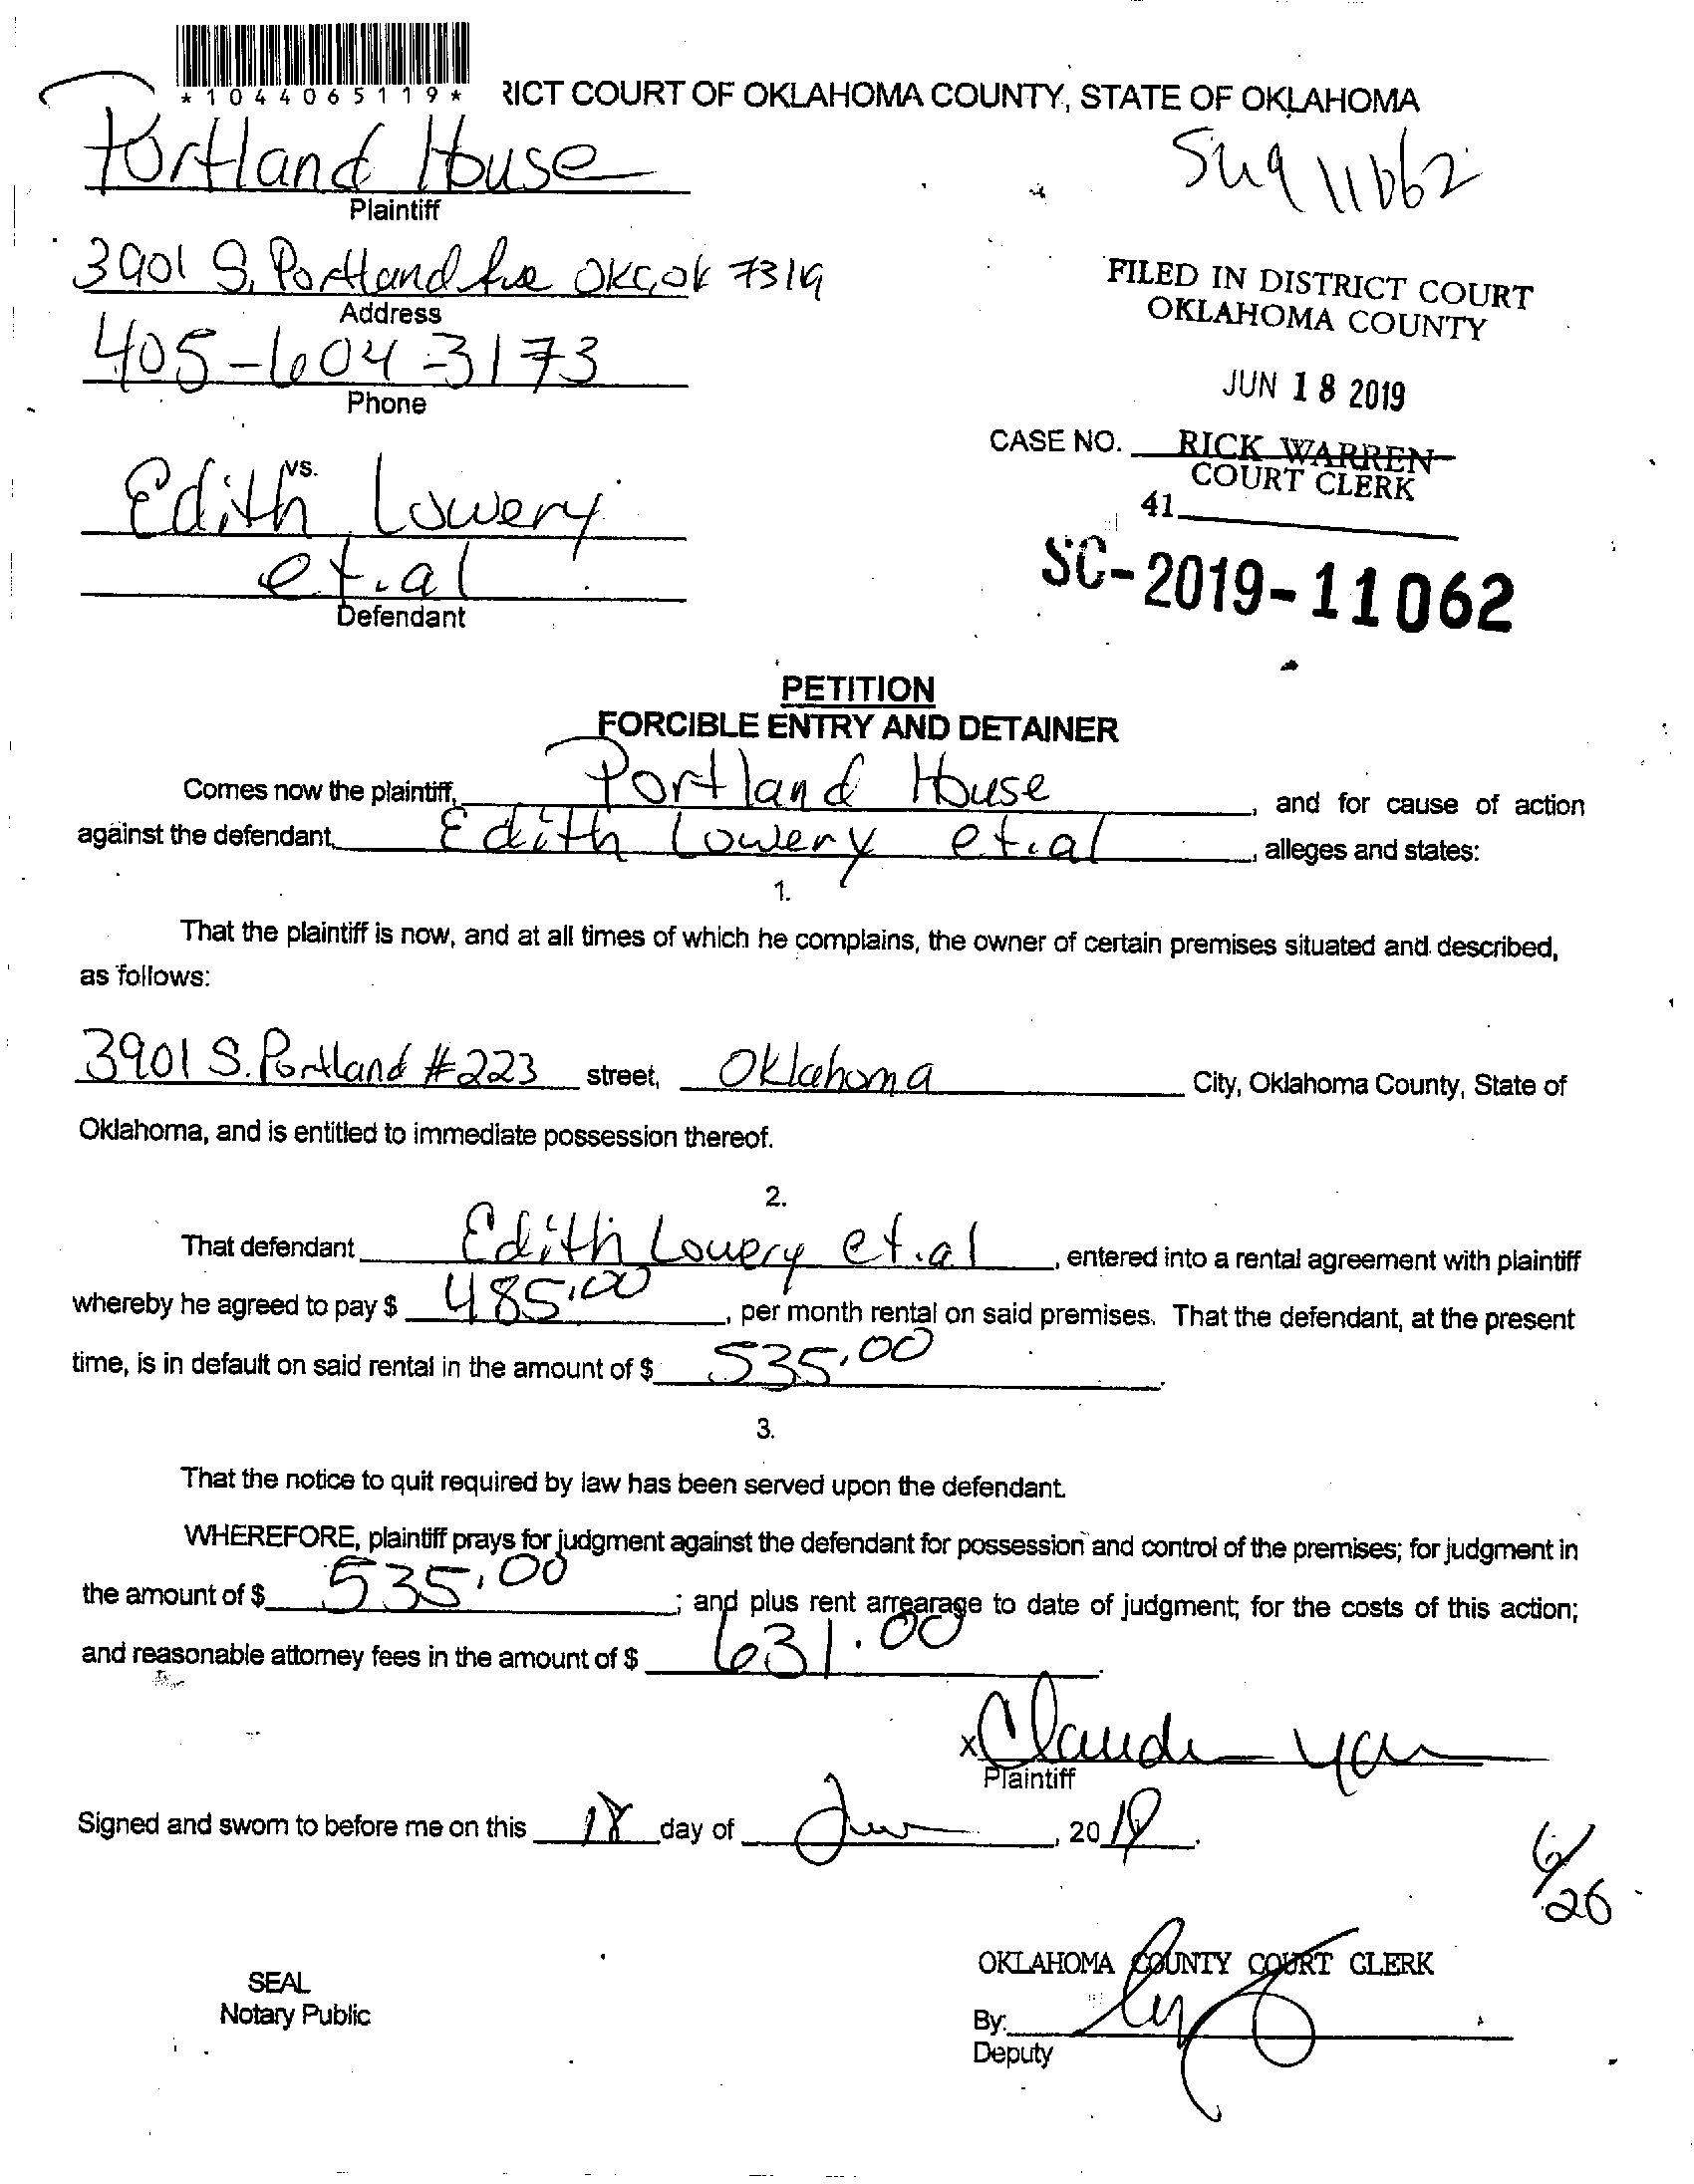 *1044065119*
RICT COURT OF OKLAHOMA COUNTY, STATE OF OKLAHOMA
Portland House
Plaintiff
3901 S. Portland Ave OKC, OK 7319
Address
405-604-3173
Phone
vs.
Edith Lowery
et.al
Defendant
11062
FILED IN DISTRICT COURT
OKLAHOMA COUNTY
JUN 18 2019
CASE NO. RICK WARREN
COURT CLERK
41
SC-2019-11062
PETITION
FORCIBLE ENTRY AND DETAINER
Comes now the plaintiff, Portland House, and for cause of action
against the defendant, Edith Lowery et.al, alleges and states:
1.
That the plaintiff is now, and at all times of which he complains, the owner of certain premises situated and described,
as follows:
3901 S. Portland #223 street, Oklahoma City, Oklahoma County, State of
Oklahoma, and is entitled to immediate possession thereof.
2.
That defendant Edith Lowery et.al, entered into a rental agreement with plaintiff
whereby he agreed to pay $ 485.00, per month rental on said premises. That the defendant, at the present
time, is in default on said rental in the amount of $ 535.00.
3.
That the notice to quit required by law has been served upon the defendant.
WHEREFORE, plaintiff prays for judgment against the defendant for possession and control of the premises; for judgment in
the amount of $ 535.00; and plus rent arrearage to date of judgment; for the costs of this action;
and reasonable attorney fees in the amount of $ 631.00.
x
Plaintiff
Signed and sworn to before me on this 18 day of Jun, 2019.
6/26
SEAL
Notary Public
OKLAHOMA COUNTY COURT CLERK
By:
Deputy